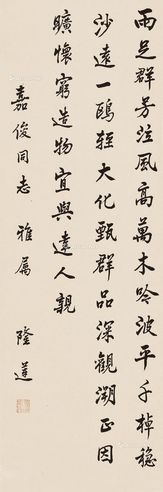 雨足群芳注風高萬木吟波平千棹穩
沙遠一鷗輕大化甄群品深觀溯正因
曠懷窮造物宜與遠人親
嘉俊同志 雅屬 隆蓮